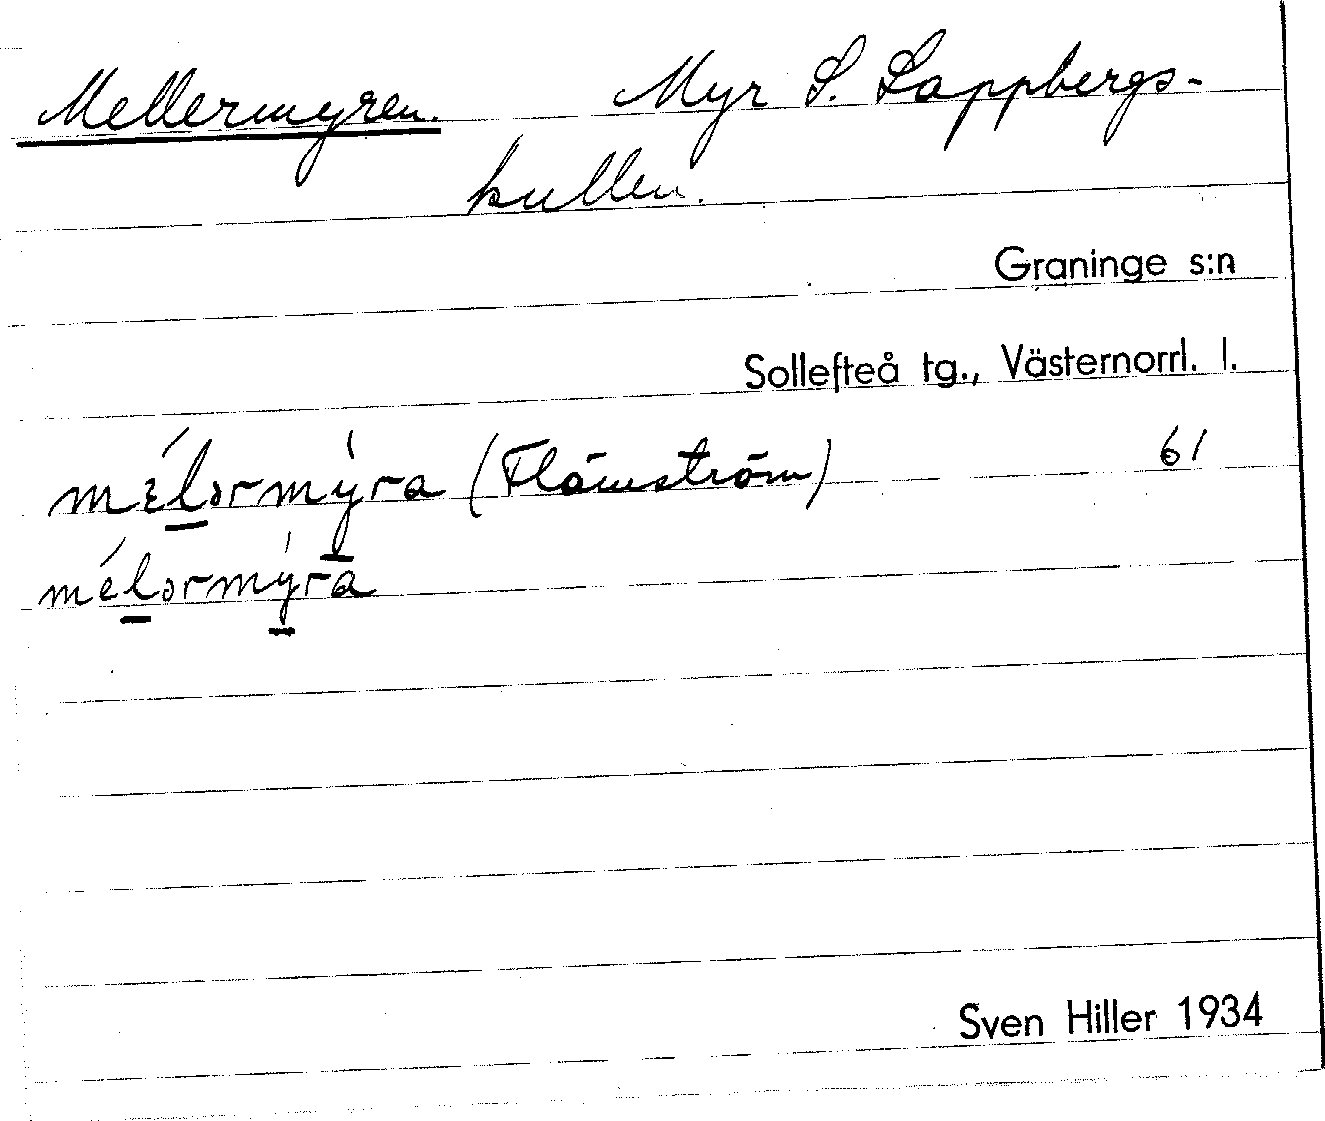 Mellermyren. Myr S. Lappbergs-
kullen.
Graninge s:n
Sollefteå tg., Västernorrl. l.
mélərmỳra (Flämström) 61
mélərmỳra
Sven Hiller 1934